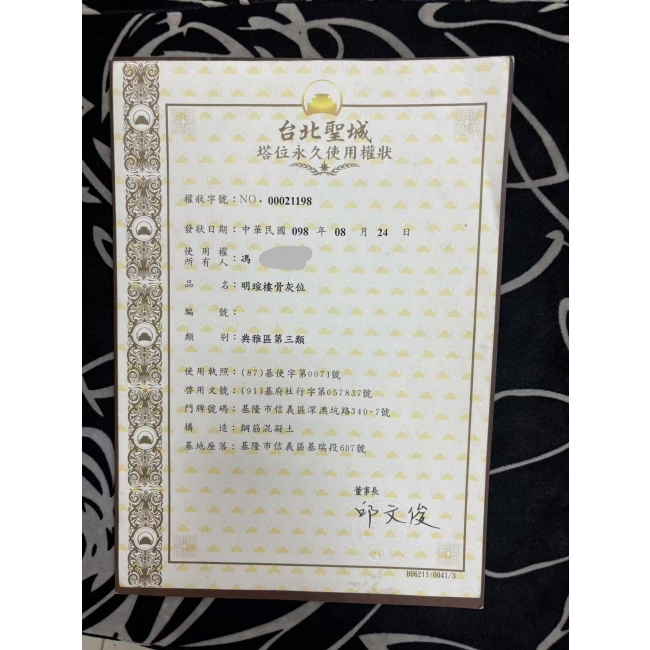 台北聖城
塔位永久使用權狀
權狀字號：NO. 00021198
發狀日期：中華民國 098 年 08 月 24 日
使用權所有人：馮
品名：明瑄樓骨灰位
編號：
類別：典雅區第三類
使用執照：(87)基使字第0071號
啓用文號：(91)基府社行字第057837號
門牌號碼：基隆市信義區深澳坑路340-7號
構造：鋼筋混凝土
基地座落：基隆市信義區基瑞段607號
董事長
邱文俊
B06211/0041/3